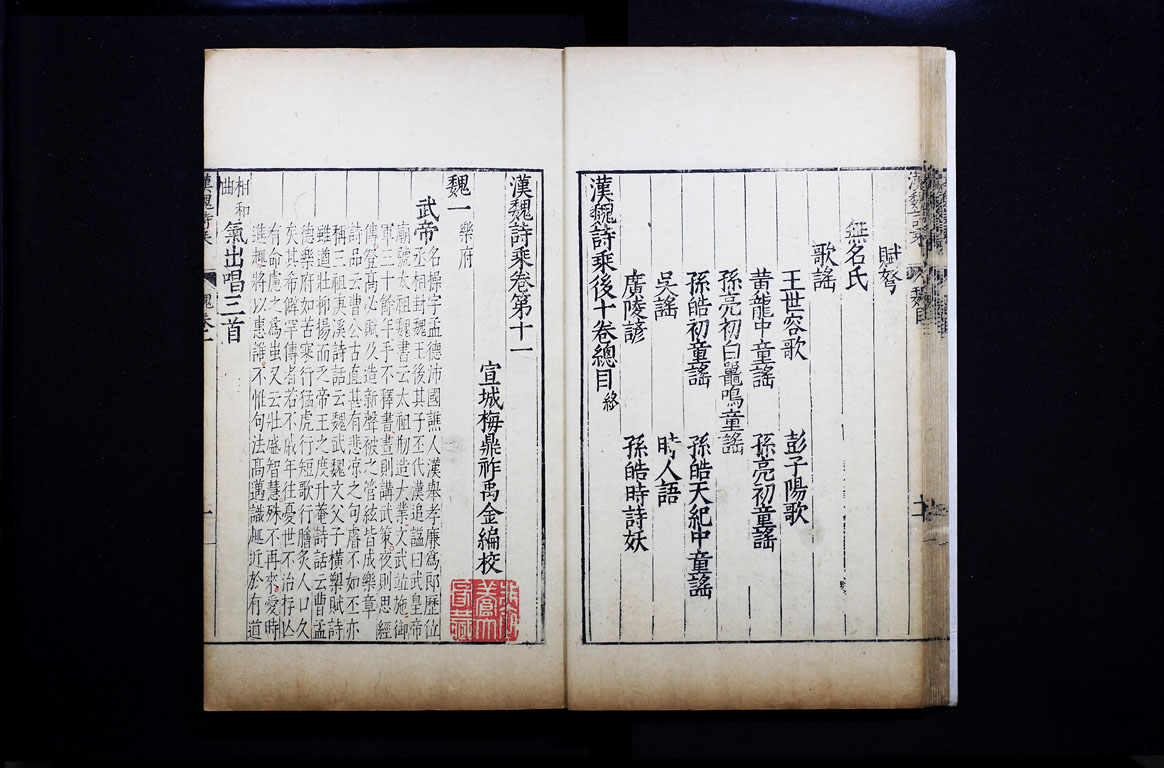 賦弩
無名氏
歌謠
王世容歌　彭子陽歌
黃龍中童謠　孫亮初童謠
孫亮初白鼉鳴童謠
孫皓初童謠　孫皓天紀中童謠
吳謠　時人語
廣陵諺　孫皓時詩妖
漢魏詩乘後十卷總目終
漢魏詩乘卷第十一
宣城梅鼎祚禹金編校
魏一樂府
武帝名操字孟德沛國譙人漢舉孝廉爲郎歷位
丞相封魏王後其子丕代漢追謚曰武皇帝
廟號太祖魏書云太祖刱造大業文武竝施御
軍三十餘年手不釋書晝則講武策夜則思經
傳登髙必賦及造新聲被之管絃皆成樂章
詩品云曹公古直甚有悲凉之句叡不如丕亦
稱三祖庚溪詩話云魏武魏文父子橫槊賦詩
雖遒壯抑揚而乏帝王之度升菴詩話云曹孟
德樂府如苦寒行猛虎行短歌行膾炙人口久
矣其希僻罕傳者若不戚年往憂世不治存亾
有命慮之爲蚩又云壯盛智慧殊不再來愛時
進趣將以惠誰不惟句法髙邁識趣近於有道
相和曲氣出唱三首